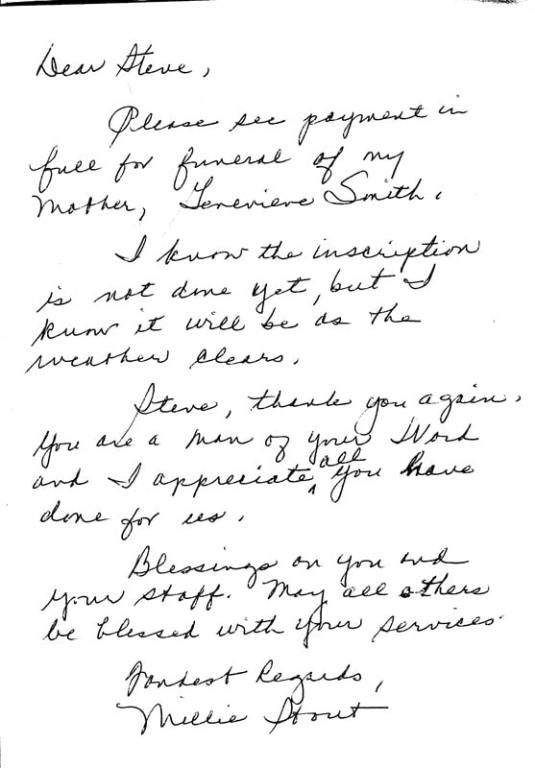 Dear Steve,
Please see payment in
full for funeral of my
Mother, Genevieve Smith.
I know the inscription
is not done yet, but I
know it will be as the
weather clears.
Steve, thank you again.
You are a man of your Word
and I appreciate all you have
done for us.
Blessings on you and
your staff. May all others
be blessed with your services.
Fondest Regards,
Millie Stout